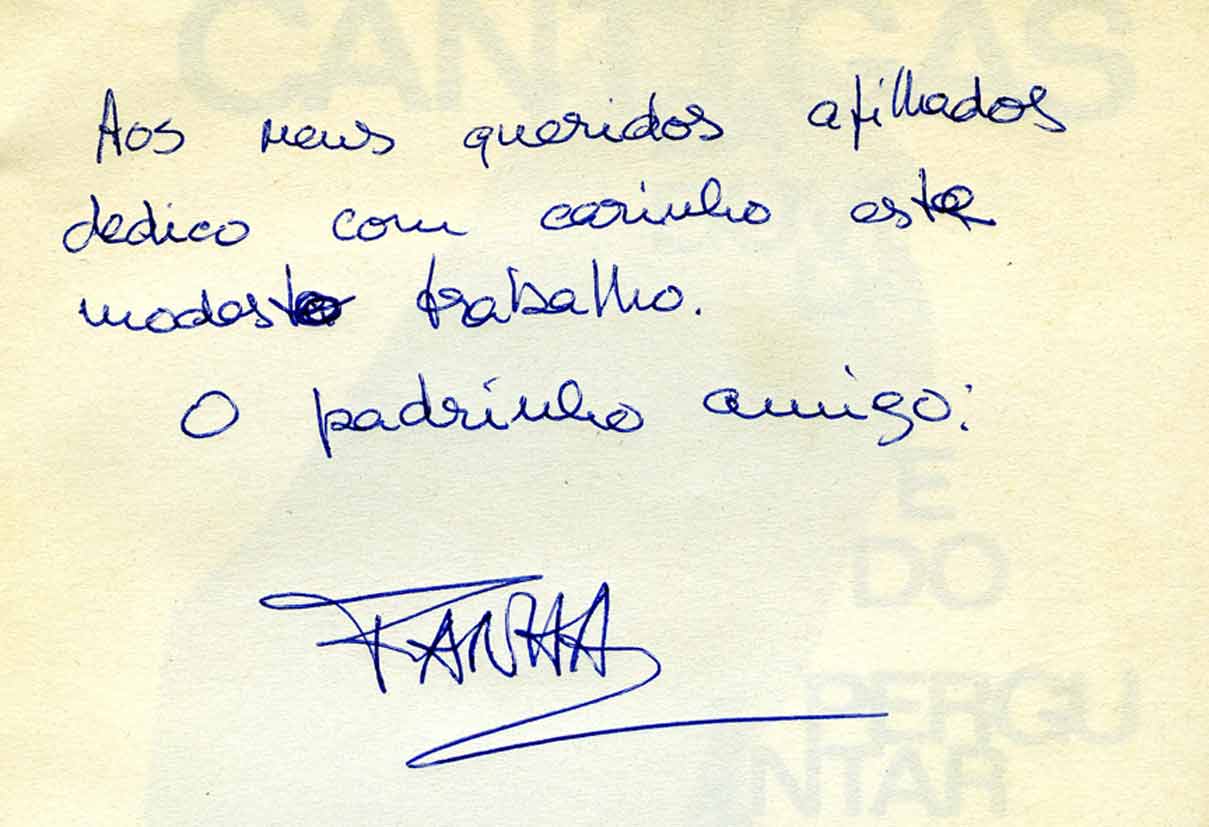 CANTIGAS
Aos meus queridos afilhados
dedico com carinho este
modesto trabalho.
O padrinho amigo:
E
DO
FANHA
PERGU
NTAR